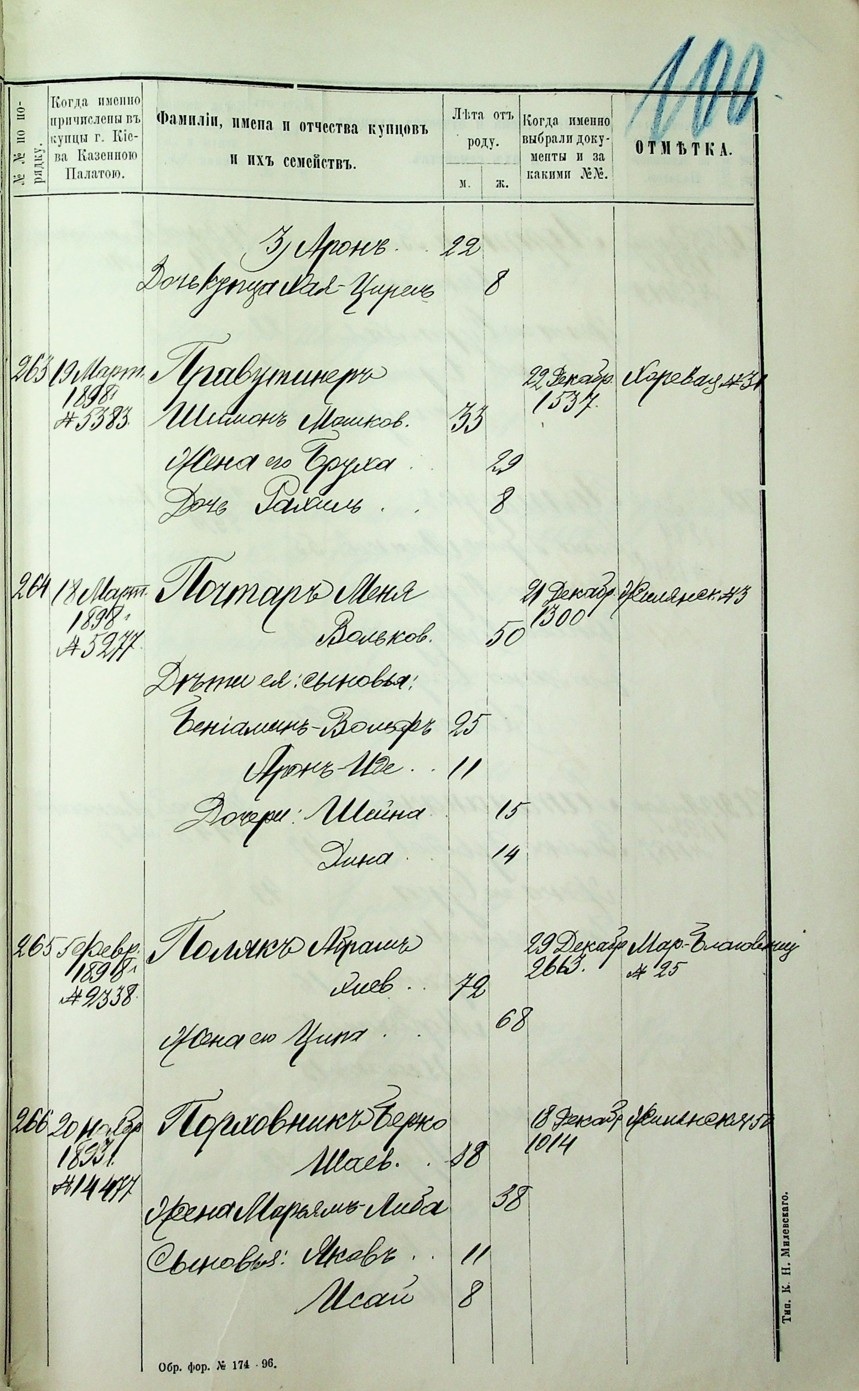 100
№ № по по-
рядку.
Когда именно
причислены въ
купцы г. Кіе-
ва Казенною
Палатою.
Фамиліи, имена и отчества купцовъ
и ихъ семействъ.
Лѣта отъ
роду.
м. ж.
Когда именно
выбрали доку-
менты и за
какими №№.
ОТМѢТКА.
3) Аронъ. 22
Дочь купца Хая-Цирель 8
263 19 Март. Правутинеръ 22 Декабр. Хоревая №
1898 г. Шимонъ Машков. 33 1537.
№ 5383
Жена его Бруха 29
Дочь Рахиль 8
264 18 Март. Почтаръ Меня 21 Декабр. Жилянск. № 3
1898 г. Вольков. 50 1300
№ 5277
Дѣти ея: сыновья:
Беніаминъ-Вольфъ 25
Аронъ-Иде 11
Дочери: Шейна 15
Дина 14
265 5 Февр. Полякъ Абрамъ 29 Декабр. Мар.-Благовѣщ
1898 г. Хиев. 72 2663. № 25
№ 2338
Жена его Ципа 68
266 20 Ноябр. Порховникъ Берко 18 Декабр. Жилянская
1893 г. Шаев. 38 1014
№ 14477
Жена Марьямъ-Либа 38
Сыновья: Яковъ 11
Исай 8
Обр. фор. № 174 - 96.
Тип. К. Н. Милевскаго.